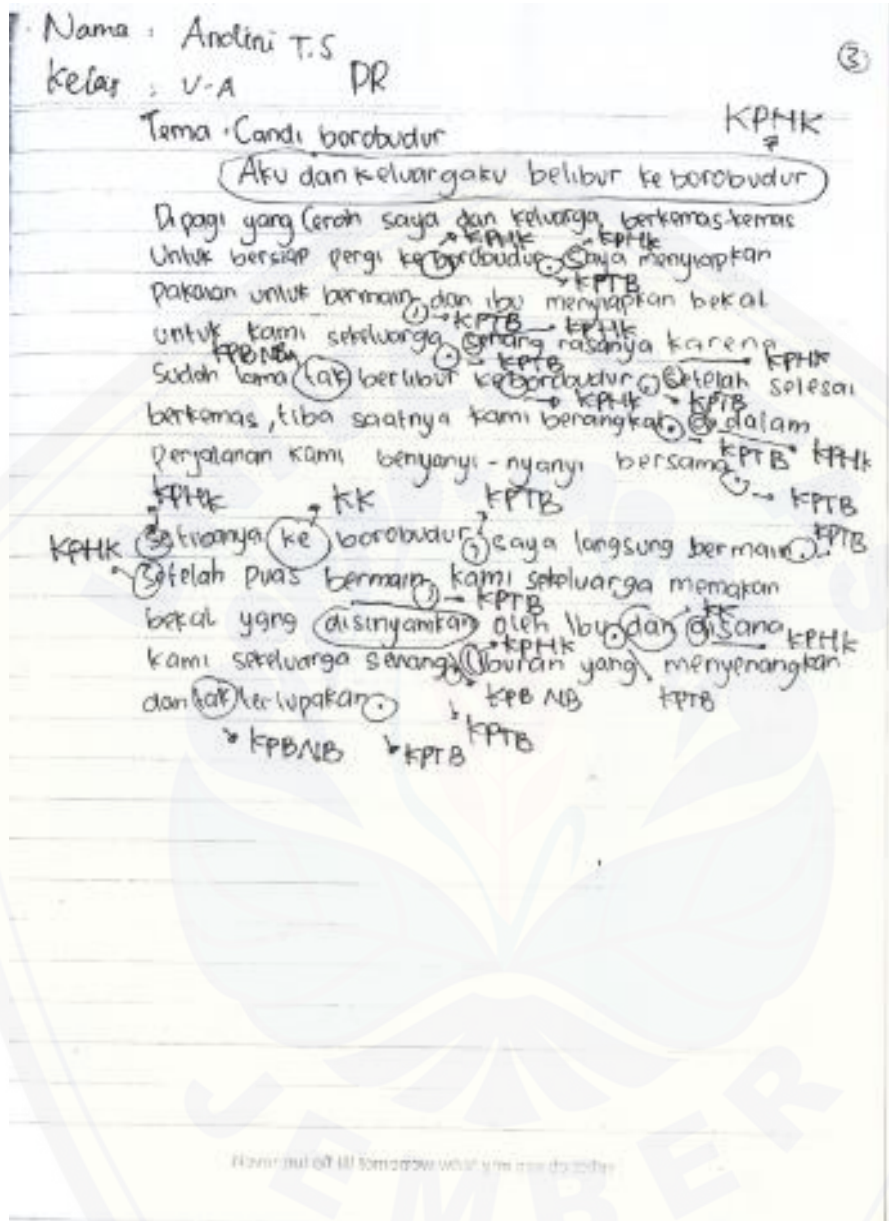 Nama : Andini T.S
③
Kelas : V-A
DR
KPHK
Tema : Candi borobudur
Aku dan keluargaku belibur ke borobudur
Di pagi yang Cerah saya dan keluarga berkemas-kemas
KPHK KPHK
Untuk bersiap pergi ke borobudur. Saya menyiapkan
KPTB
pakaian untuk bermain, dan ibu menyiapkan bekal
KPTB KPHK
untuk kami sekeluarga. Senang rasanya karena
KPBNB KPTB KPHK
Sudah lama tak berlibur ke borobudur. Setelah selesai
KPHK KPTB
berkemas, tiba saatnya kami berangkat. di dalam
KPTB KPHK
Perjalanan kami benyanyi-nyanyi bersama.
KPTB
KPHK KK KPTB
KPHK Setibanya ke borobudur, saya langsung bermain. KPTB
Setelah puas bermain, kami sekeluarga memakan
KPTB KK
bekal yang disinyamkan oleh Ibu. dan disana
KPHK KPHK
kami sekeluarga senang. Liburan yang menyenangkan
KPBNB KPTB
dan tak terlupakan.
KPTB
KPBNB KPTB
JEMBER